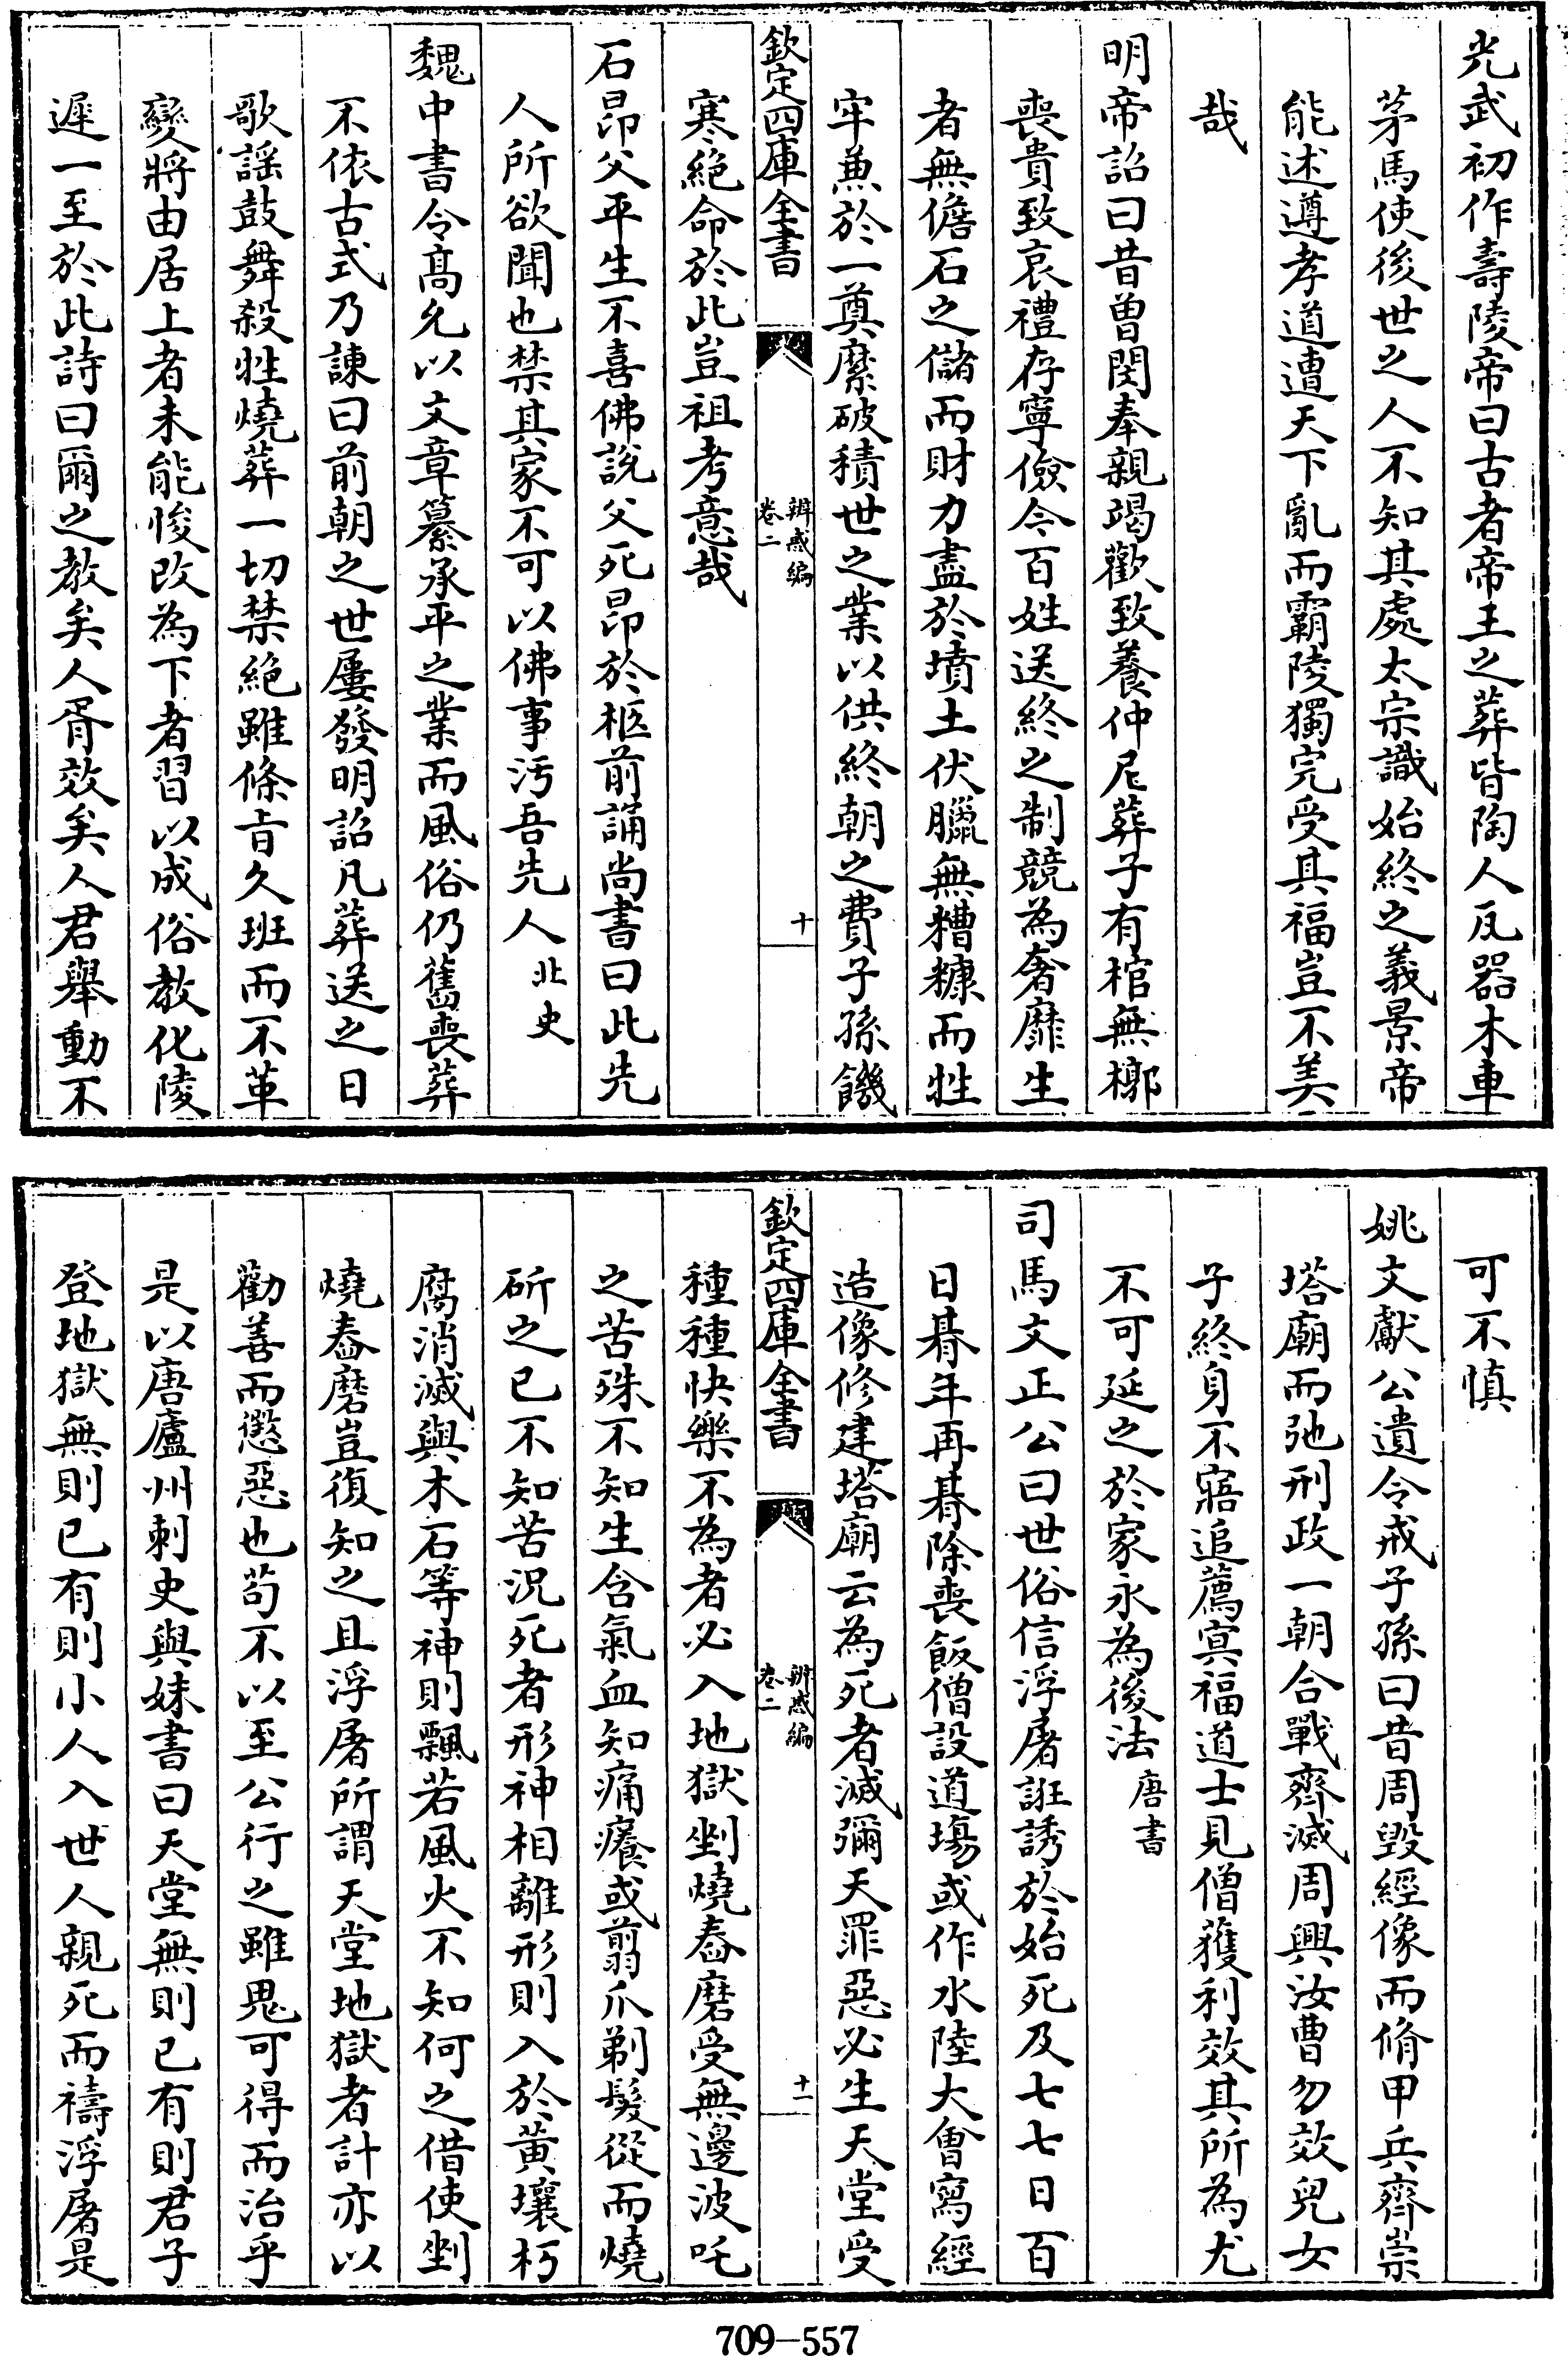 光武初作壽陵帝曰古者帝王之葬皆陶人瓦器木車
茅馬使後世之人不知其處太宗識始終之義景帝
能述遵孝道遭天下亂而霸陵獨完受其福豈不美
哉
明帝詔曰昔曾閔奉親竭歡致養仲尼葬子有棺無槨
喪貴致哀禮存寧儉今百姓送終之制競為奢靡生
者無儋石之儲而財力盡於墳土伏臘無糟糠而牲
牢兼於一奠糜破積世之業以供終朝之費子孫饑
欽定四庫全書
辨惑編
卷二
十
寒絕命於此豈祖考意哉
石昂父平生不喜佛說父死昂於柩前誦尚書曰此先
人所欲聞也禁其家不可以佛事汚吾先人北史
魏中書令高允以文章纂承平之業而風俗仍舊喪葬
不依古式乃諫曰前朝之世屢發明詔凡葬送之日
歌謡鼓舞殺牲燒葬一切禁絕雖條㫖久班而不革
變將由居上者未能悛改為下者習以成俗教化陵
遲一至於此詩曰爾之教矣人胥效矣人君舉動不
可不慎
姚文獻公遺令戒子孫曰昔周毀經像而脩甲兵齊崇
塔廟而弛刑政一朝合戰齊滅周興汝曹勿效兒女
子終身不寤追薦冥福道士見僧獲利效其所為尤
不可延之於家永為後法唐書
司馬文正公曰世俗信浮屠誑誘於始死及七七日百
日朞年再朞除喪飯僧設道塲或作水陸大會寫經
造像修建塔廟云為死者滅彌天罪惡必生天堂受
欽定四庫全書
辨惑編
卷二
十一
種種快樂不為者必入地獄剉燒舂磨受無邊波吒
之苦殊不知生含氣血知痛癢或翦爪剃髮從而燒
斫之已不知苦況死者形神相離形則入於黃壤朽
腐消滅與木石等神則飄若風火不知何之借使剉
燒舂磨豈復知之且浮屠所謂天堂地獄者計亦以
勸善而懲惡也苟不以至公行之雖鬼可得而治乎
是以唐廬州刺史與妹書曰天堂無則已有則君子
登地獄無則已有則小人入世人親死而禱浮屠是
709-557